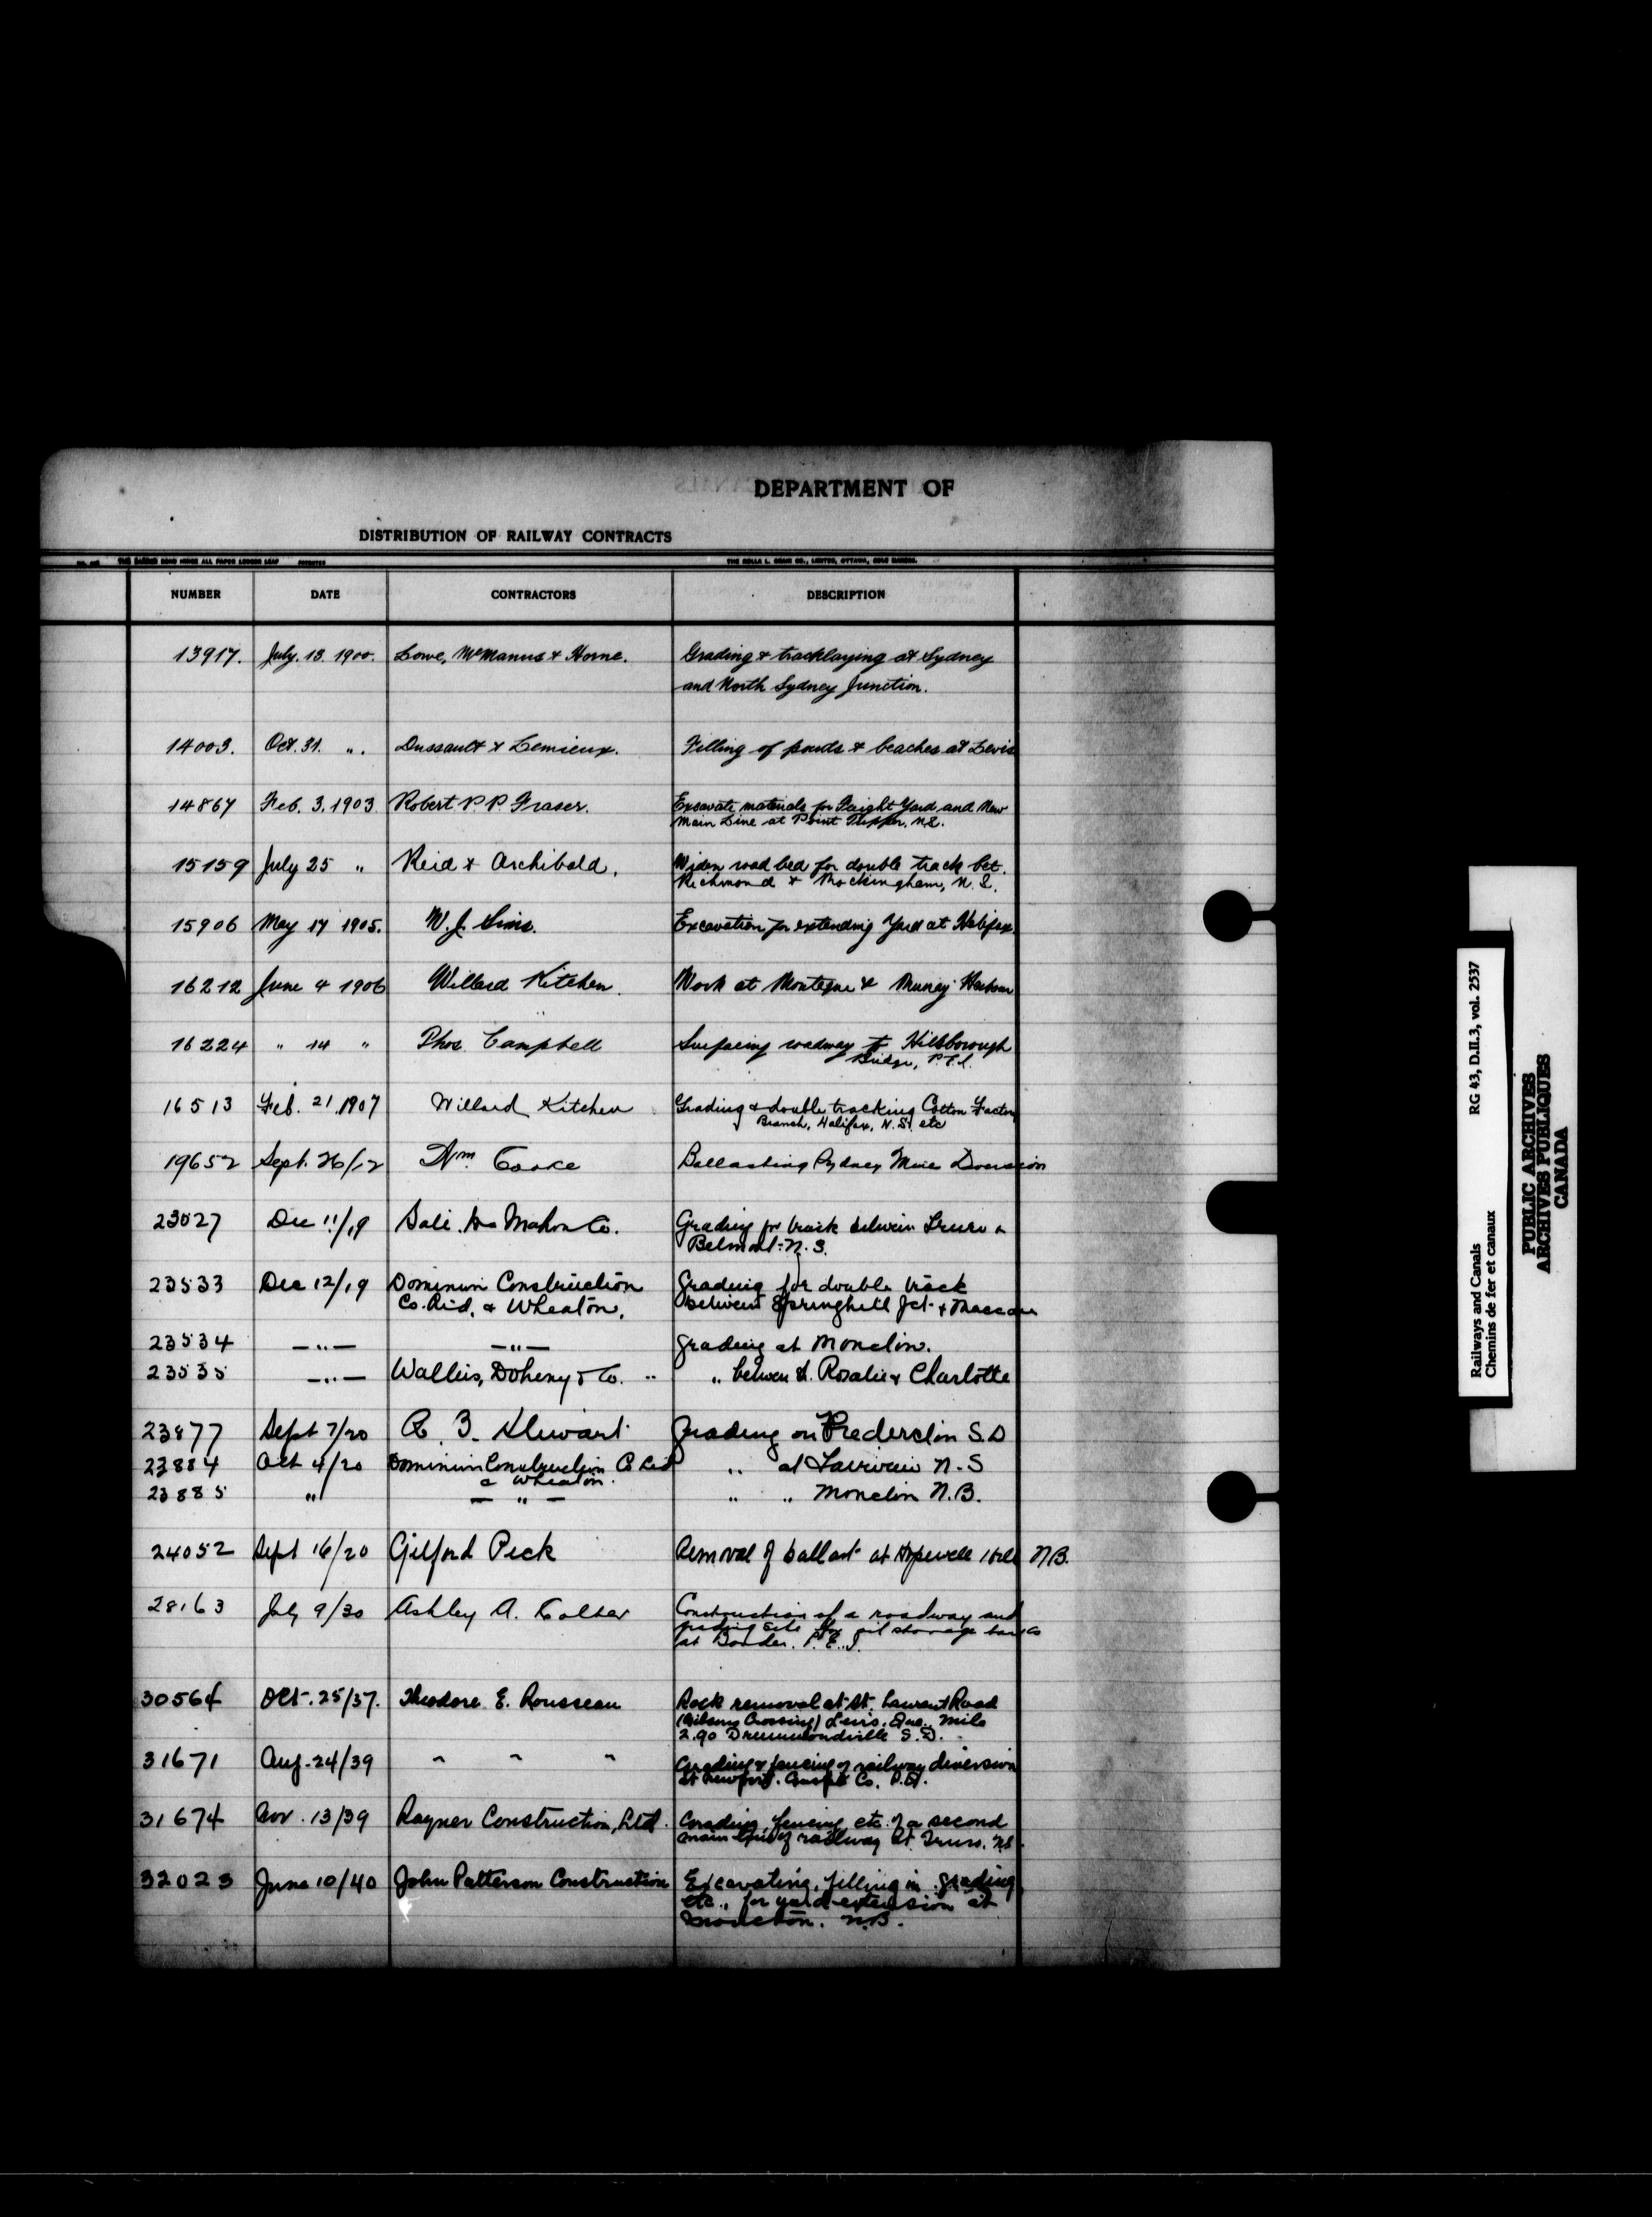 DEPARTMENT OF
DISTRIBUTION OF RAILWAY CONTRACTS
NUMBER DATE CONTRACTORS DESCRIPTION
13917. July. 13. 1900. Lowe, McManus & Horne. Grading & tracklaying at Sydney
and North Sydney Junction.
14003. Oct. 31. ". Dussault & Lemieux. Filling of ponds & beaches at Levis
14867 Feb. 3. 1903 Robert P. P. Fraser. Excavate materials for Freight Yard and New
Main Line at Point Tupper, N.S.
15159 July 25 " Reid & Archibald, Widen road bed for double track bet.
Richmond & Rockingham, N.S.
15906 May 17 1905. W. J. Sims. Excavation for extending Yard at Halifax.
16212 June 4 1906 Willard Kitchen. Work at Montague & Murray Harbour
16224 " 14 " Thos Campbell Surfacing roadway to Hillsborough
Bridge, P.E.I.
16513 Feb. 21, 1907 Willard Kitchen Grading & double tracking Cotton Factory
Branch, Halifax, N.S. etc
19652 Sept. 26/12 Wm Cooke Ballasting Sydney Mine Diversion
23027 Dec 11/19 Mahon Co. Grading for track between Truro &
Belmont N.S.
23533 Dec 12/19 Dominion Construction Grading for double track
Co. & Wheaton, between Springhill Jct. & Maccan
23534 —"— —"— Grading at Moncton.
23535 —"— Wallis, Doheny & Co. " " between St. Rosalie & Charlotte
23877 Sept 7/20 B. Stewart Grading on Fredericton S.D
23884 Oct 4/20 Dominion Construction Co Ltd " at Fairview N.S
& Wheaton.
23885 " — " — " " Moncton N.B.
24052 Sept 16/20 Gilford Peck Removal of ballast at Hopewell Hill N.B.
28163 July 9/30 Ashley A. Colter Construction of a roadway and
grading site for oil storage tanks
at Borden. P.E.I.
30564 Oct. 25/37. Theodore E. Rousseau Rock removal at St. Laurent Road
(Gibsons Crossing) Levis. Que. Mile
2.90 Drummondville S.D.
31671 Aug. 24/39 " " " Grading & fencing of railway diversion
at Newport. Gaspé Co. P.Q.
31674 Nov. 13/39 Rayner Construction, Ltd. Grading, fencing etc. of a second
main line of railway at Truro. N.S.
32023 June 10/40 John Patterson Construction Excavating, filling in, grading
etc., for yard extension at
Moncton. N.B.
Railways and Canals RG 43, D.II.3, vol. 2537
Chemins de fer et canaux
PUBLIC ARCHIVES
ARCHIVES PUBLIQUES
CANADA